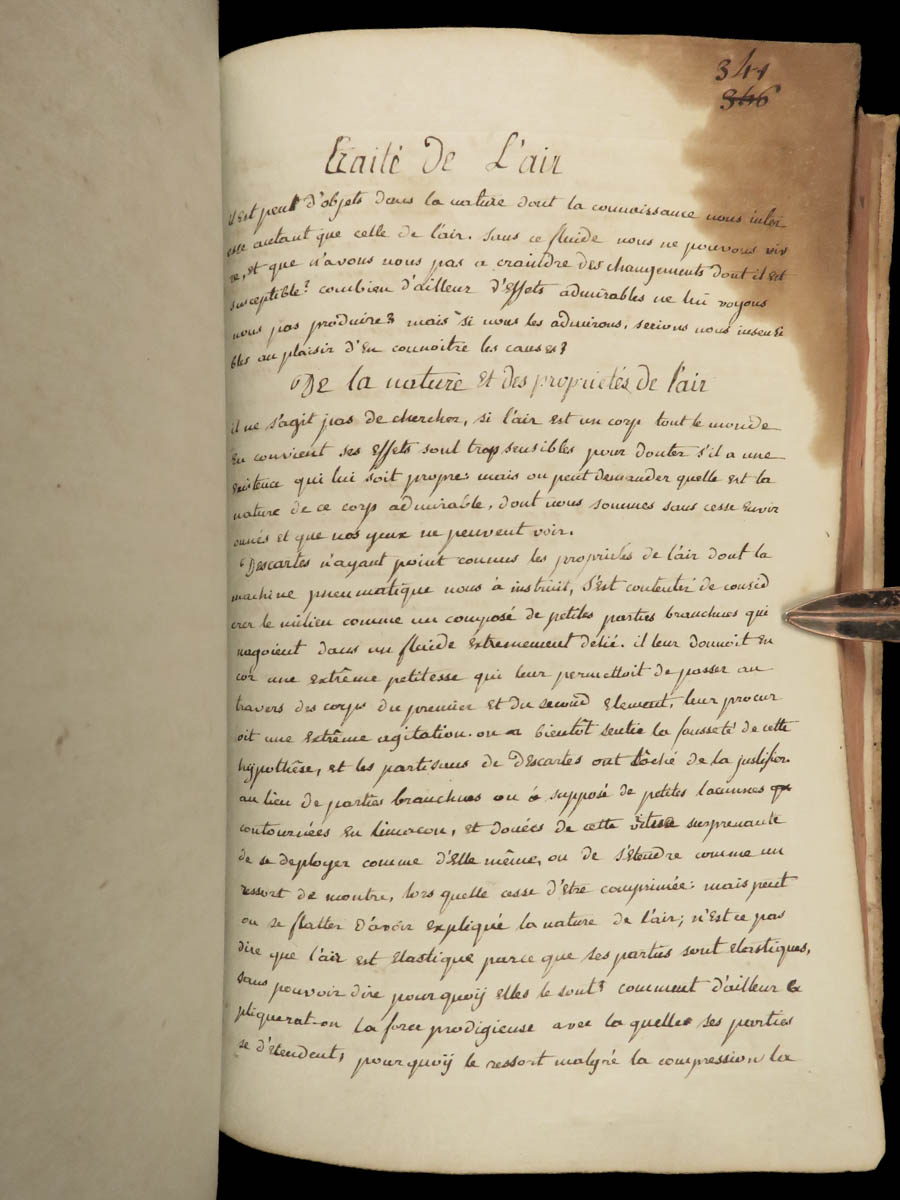 341
346
traité De L'air
il Est peut d'objets dans la nature dont la connoissance nous inter
esse autant que celle de l'air. sans ce fluide nous ne pouvons viv
re, et que n'avons nous pas a craindre des changements dont il est
susceptible? combien d'ailleur d'Effets admirables ne lui voyons
nous pas produire? mais si nous les admirons, serions nous insensi
bles au plaisir d'En connoitre les causes?
De la nature Et des proprietés de l'air
il ne s'agit pas de chercher, si l'air est un corp tout le monde
En convient ses Effets sont trop sensibles pour douter s'il a une
Existence qui lui soit propre: mais on peut demander quelle est la
nature de ce corp admirable, dont nous sommes sans cesse Envir
onnés et que nos yeux ne peuvent voir.
Descartes n'ayant point connus les propriétés de l'air dont la
machine pneumatique nous à instruit, s'est contenté de consid
erer le milieu comme un composé de petites parties branchues qui
nagoient dans un fluide Extremement délié. il leur donnoit En
cor une extrême petitesse qui leur permettoit de passer au
travers des corps du premier et du second Element, leur procur
oit une Extrême agitation. on a bientôt sentie la fausseté de cette
hypothèse, et les partisans de Descartes ont tâché de la justifier.
au lieu de parties branchues on à supposé de petites lacunnes
contournées En limacon, et douées de cette surprenante
de se deployer comme d'Elle même, ou de s'Etendre comme un
ressort de montre, lors quelle cesse d'être comprimée: mais peut
on se flatter d'avoir Expliqué la nature de l'air; n'Est ce pas
dire que l'air est Elastique parce que ses parties sont Elastiques,
sans pouvoir dire pourquoij elles le sont? comment d'ailleur Ex
pliquerat-on la force prodigieuse avec la quelle ses parties
se d'étendent, pourquoij le ressort malgré la compression la